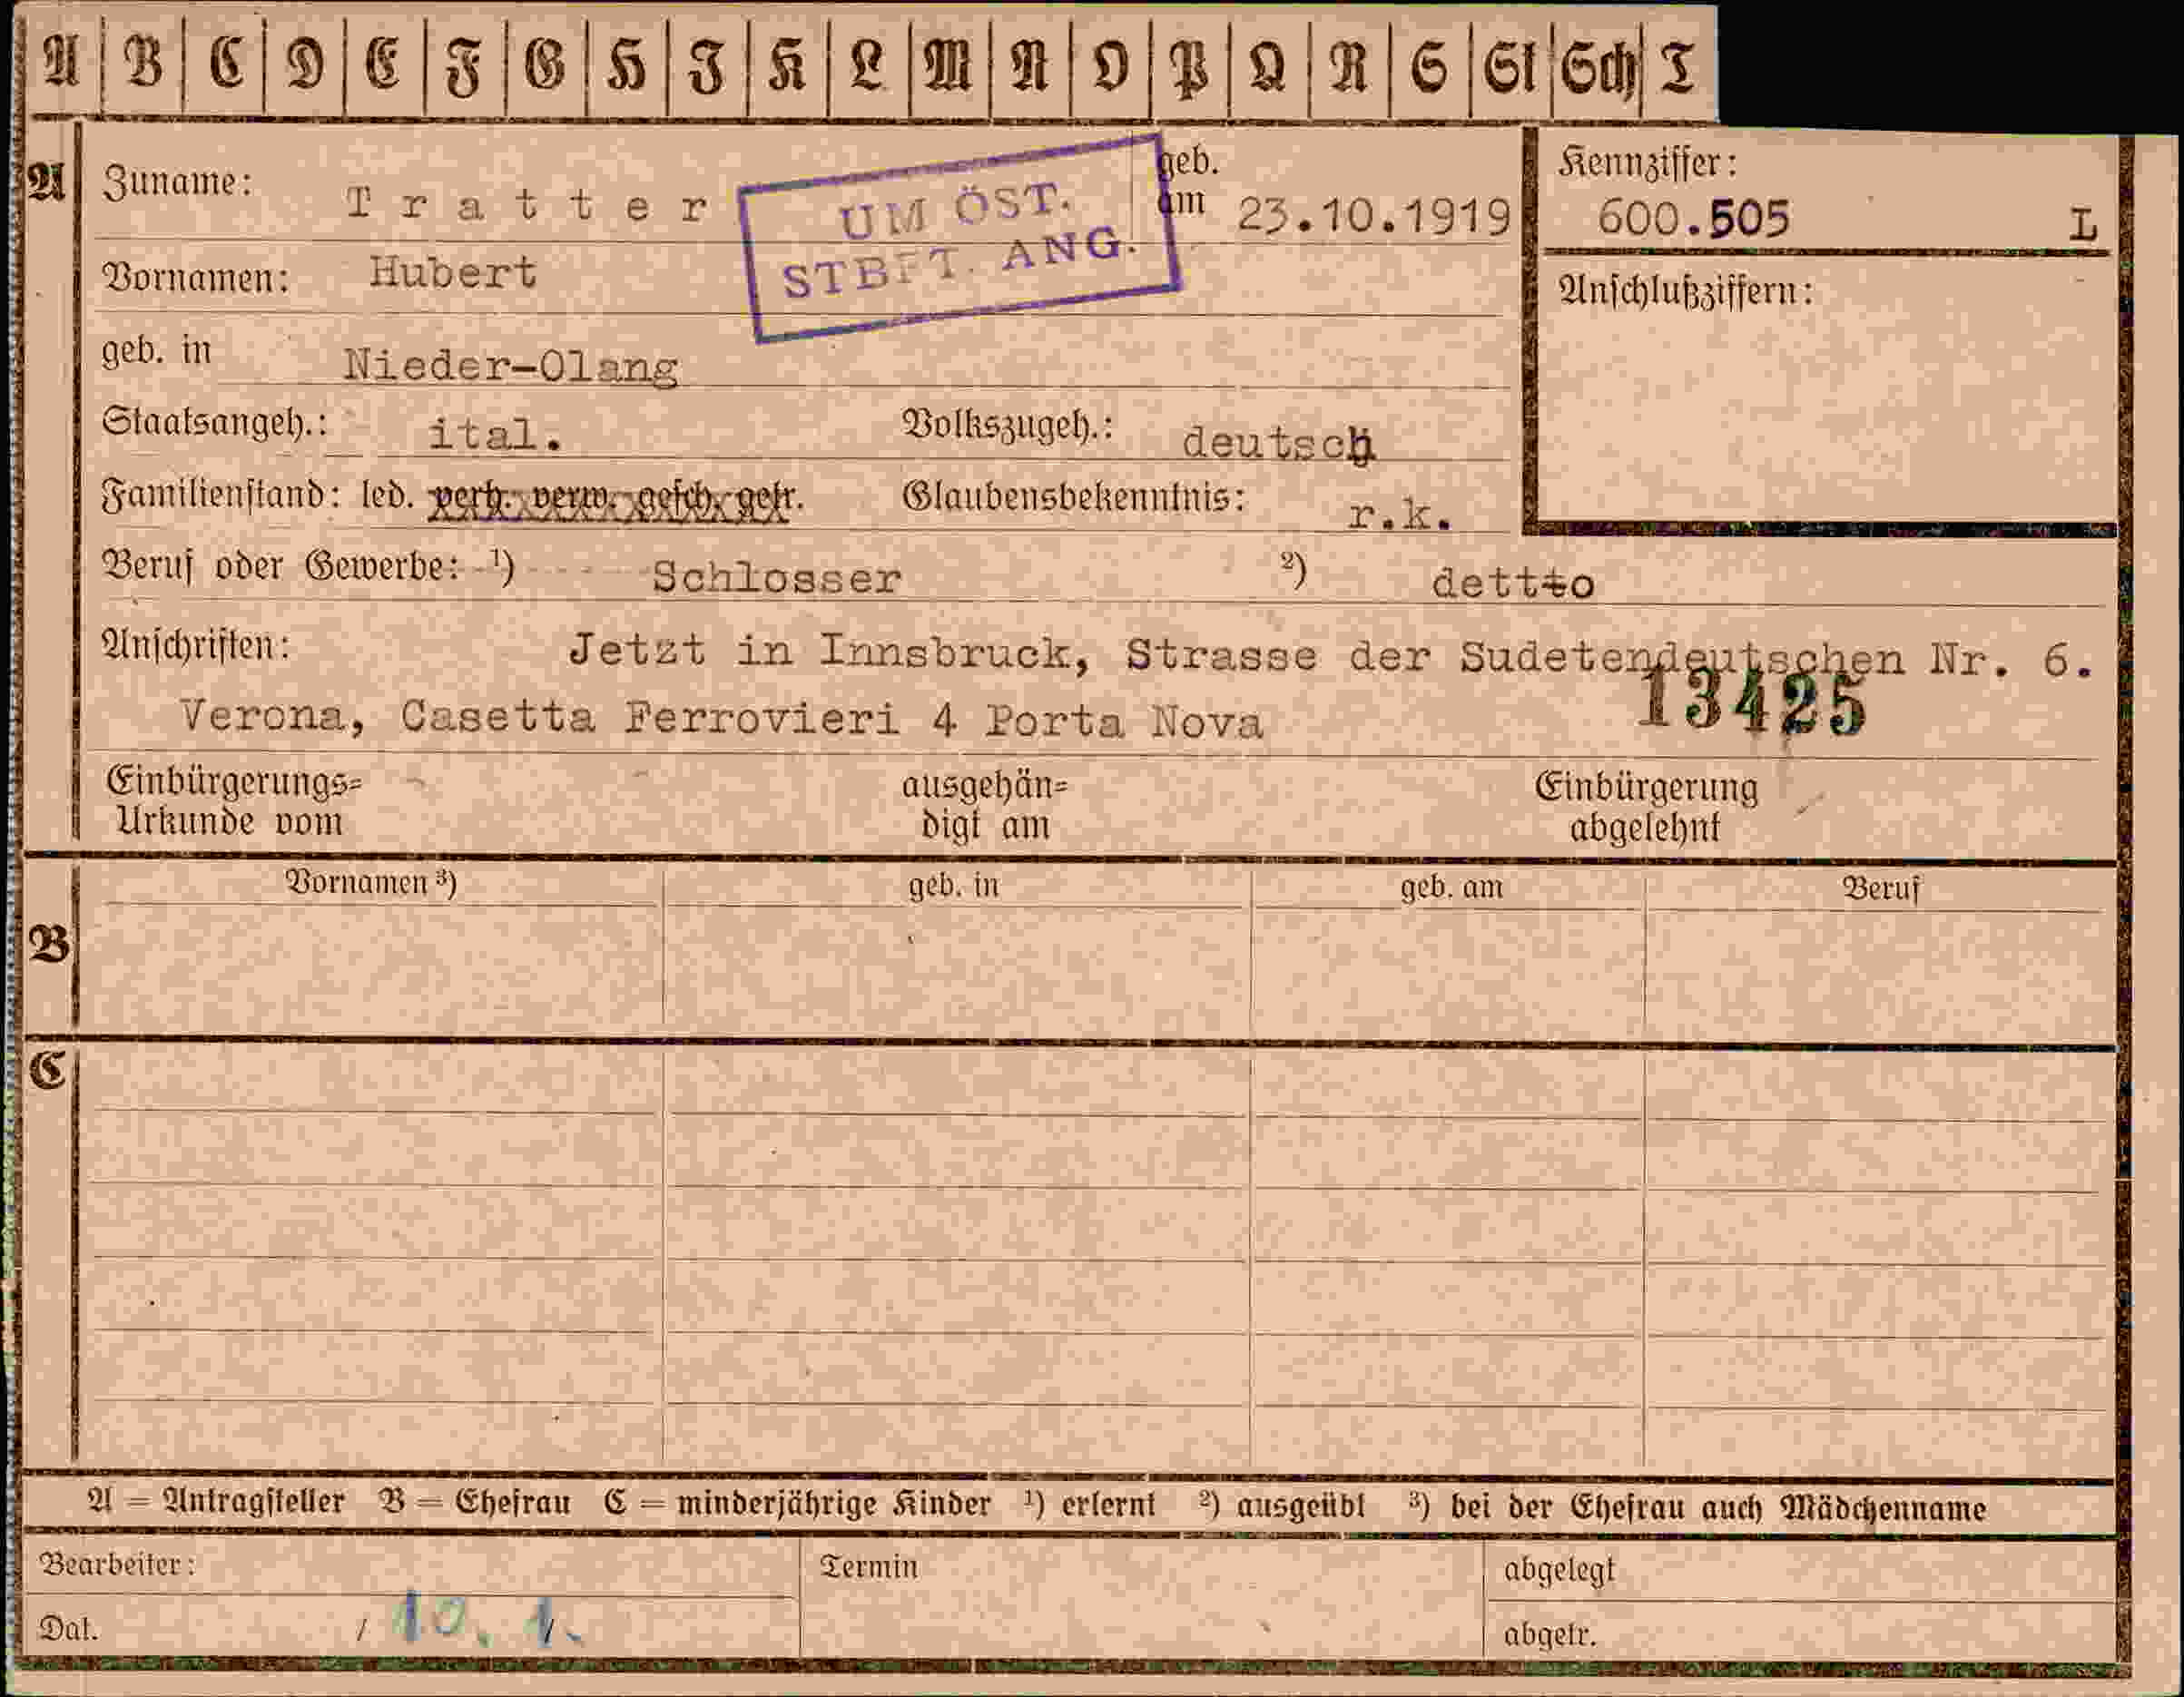 A B C D E F G H I K L M N O P Q R S St Sch T
A Zuname: Tratter geb. am 23.10.1919 Kennziffer: 600.505 L
UM ÖST.
STBFT. ANG.
Vornamen: Hubert Anschlußziffern:
geb. in Nieder-Olang
Staatsangeh.: ital. Volkszugeh.: deutsch
Familienstand: led. verh. verw. gesch. getr. Glaubensbekenntnis: r.k.
Beruf oder Gewerbe: ¹) Schlosser ²) dettto
Anschriften: Jetzt in Innsbruck, Strasse der Sudetendeutschen Nr. 6.
13425
Verona, Casetta Ferrovieri 4 Porta Nova
Einbürgerungs= ausgehän= Einbürgerung
Urkunde vom digt am abgelehnt
B Vornamen ³) geb. in geb. am Beruf
C
A = Antragsteller B = Ehefrau C = minderjährige Kinder ¹) erlernt ²) ausgeübt ³) bei der Ehefrau auch Mädchenname
Bearbeiter: Termin abgelegt
Dat. / 10. 1. abgetr.